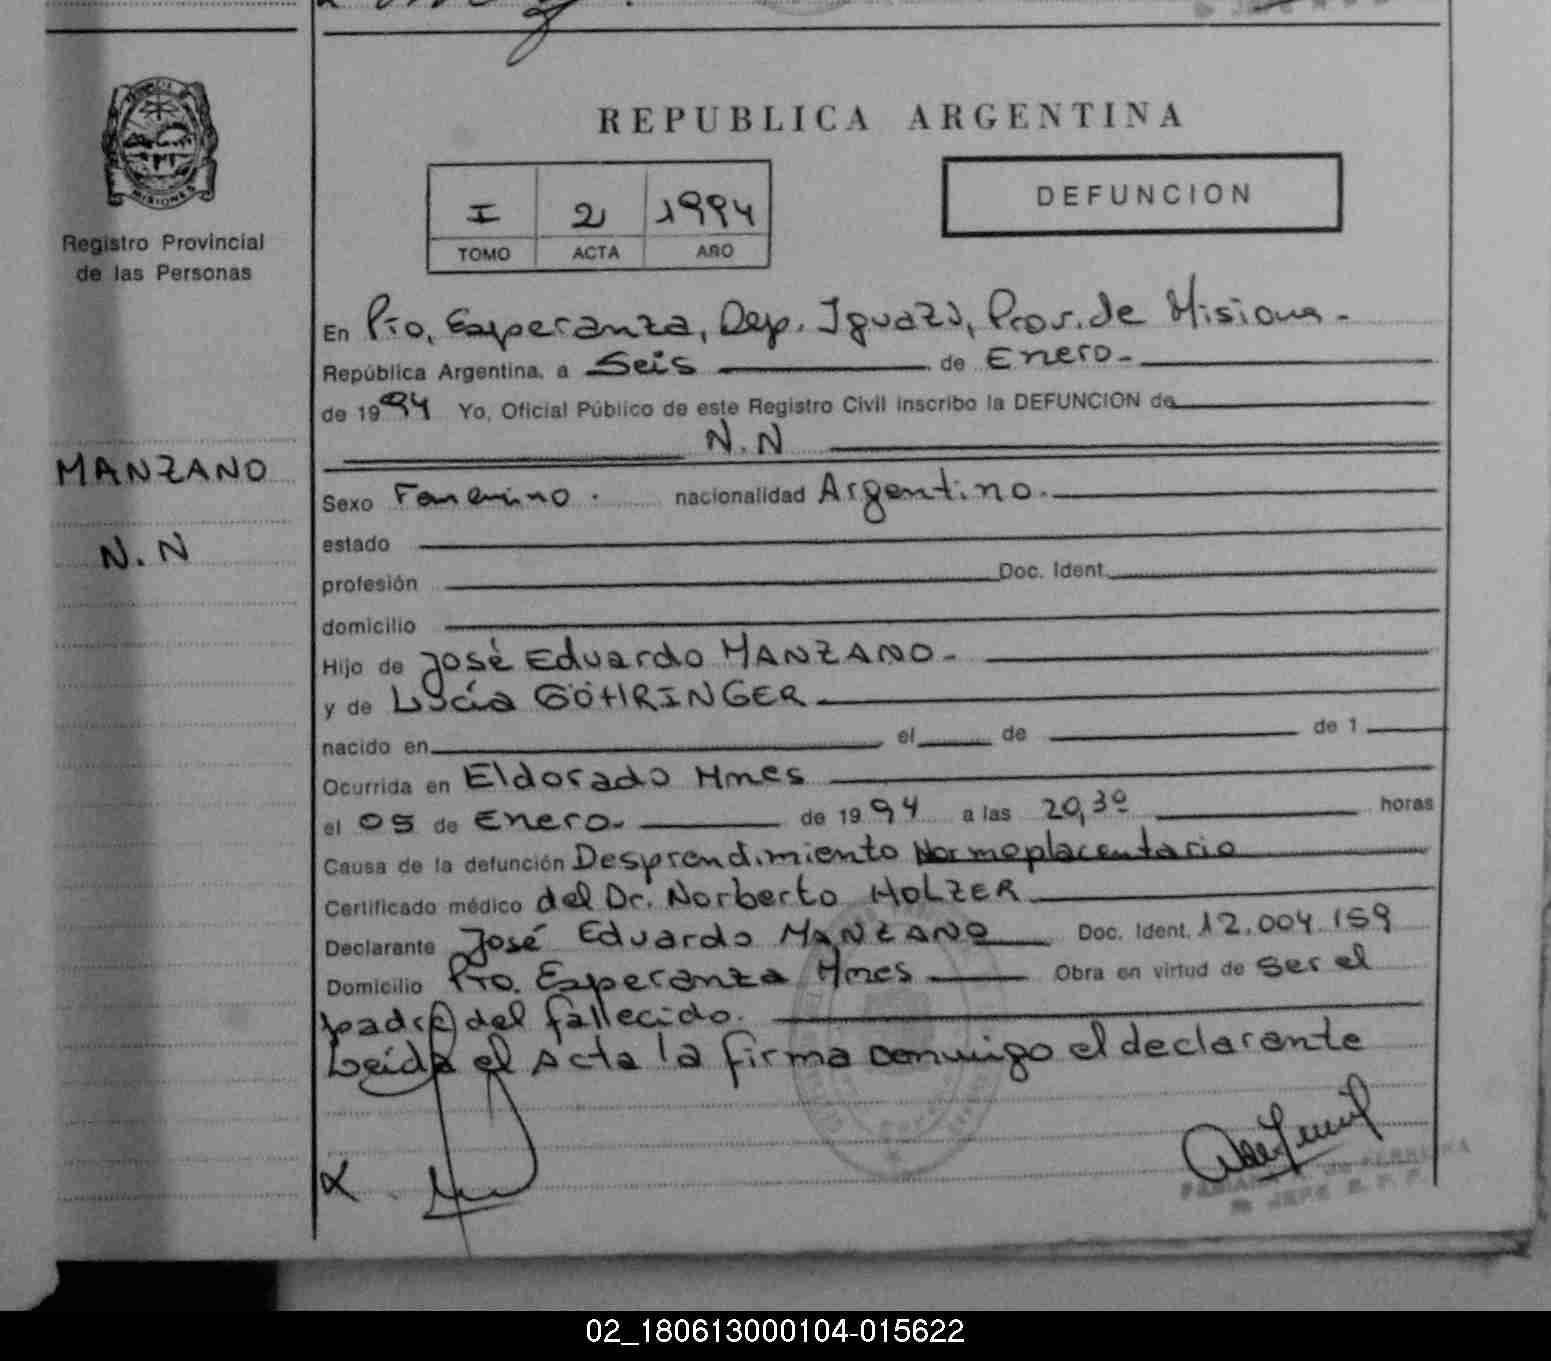 REPUBLICA ARGENTINA
MISIONES
Registro Provincial
de las Personas
I 2 1994
TOMO ACTA AÑO
DEFUNCION
En Pto. Esperanza, Dep. Iguazú, Prov. de Misiones.-
República Argentina, a Seis de Enero.-
de 1994 Yo, Oficial Público de este Registro Civil inscribo la DEFUNCION de
N.N
MANZANO
N.N
Sexo Femenino. nacionalidad Argentino.
estado
profesión Doc. Ident.
domicilio
Hijo de José Eduardo MANZANO.-
y de Lucía GÖHRINGER
nacido en el de de 1
Ocurrida en Eldorado Mnes
el 05 de Enero.- de 1994 a las 20,30 horas
Causa de la defunción Desprendimiento Normoplacentario
Certificado médico del Dr. Norberto HOLZER
Declarante José Eduardo MANZANO Doc. Ident. 12.004.159
Domicilio Pto. Esperanza Mnes Obra en virtud de ser el
padre del fallecido.
Leída el Acta la firma conmigo el declarante
JEFE R. P. P.
02_180613000104-015622